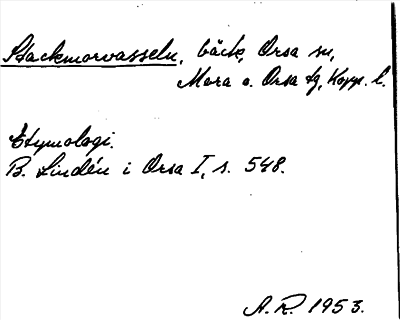 Stackmorvasseln, bäck, Orsa sn,
Mora o. Orsa tg, Kopp. l.
Etymologi.
B. Lindén i Orsa I, s. 548.
A. R. 1953.